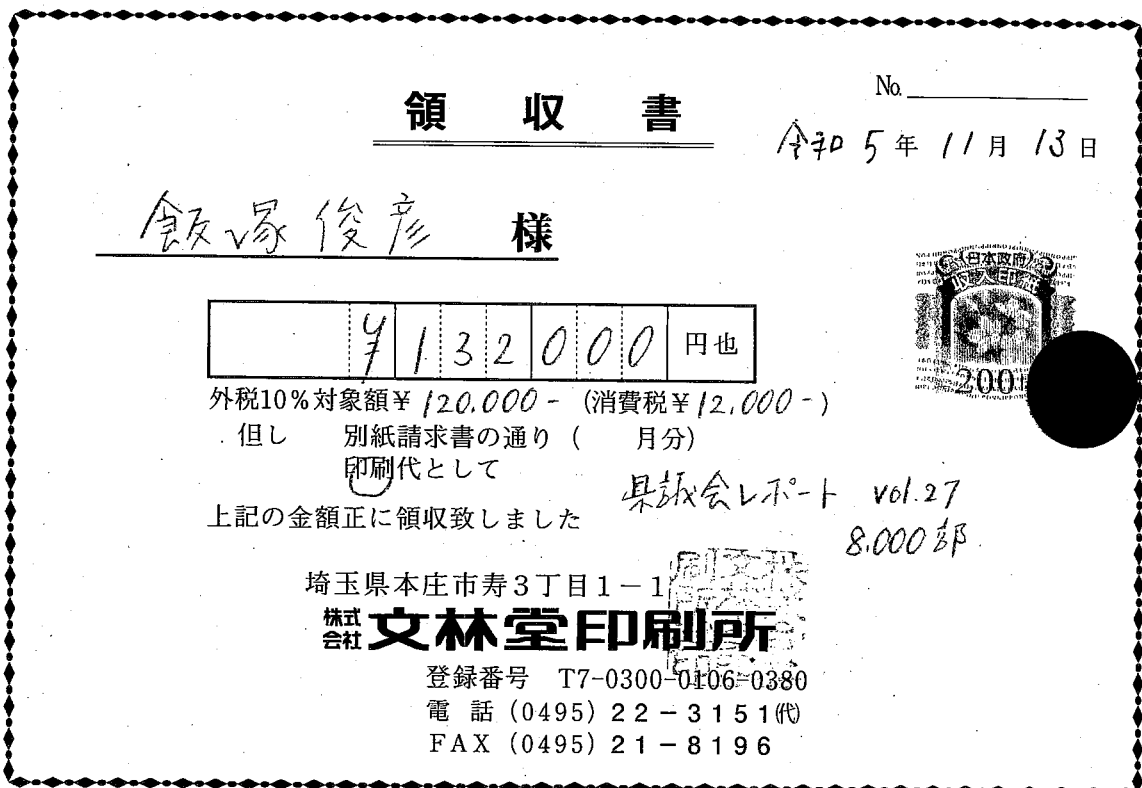 No.
領収書
令和5年11月13日
飯塚俊彦 様
¥132000円也
外税10%対象額¥120.000- (消費税¥12,000-)
但し 別紙請求書の通り ( 月分)
印刷代として
県議会レポート vol.27
8,000部
上記の金額正に領収致しました
日本政府
収入印紙
200
埼玉県本庄市寿3丁目1-1
株式会社 文林堂印刷所
登録番号 T7-0300-0106-0380
電話 (0495) 22-3151(代)
FAX (0495) 21-8196